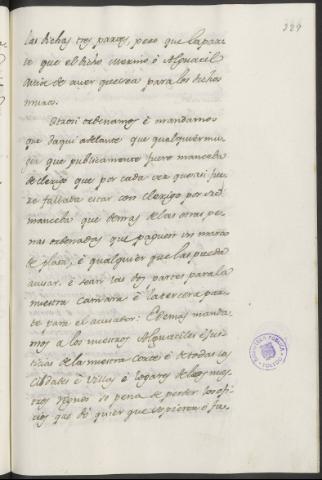 329
las dichas tres partes, pero que la par-
te que el dicho nuestro o Alguacil
avia de aver que sea para los dichos
muros.
Otrosi ordenamos è mandamos
que daqui adelante que qualquier mu-
ger que publicamente fuere manceba
de clerigo que por cada vez que assi fue-
re fallada estar con clerigo por su
manceba que demas de las otras pe-
nas ordenadas que paguen un marco
de plata, è qualquier que las pueda
acusar, è sean las dos partes para la
nuestra camara è la tercera par-
te para el acusador: E demas manda-
mos a los nuestros Alguaciles è Jus-
ticias de la nuestra Corte è de todas las
Cibdades è Villas è logares de los nues-
tros Regnos so pena de perder los ofi-
cios que do quier que sopieren o fue-
BIBLIOTECA PUBLICA
TOLEDO